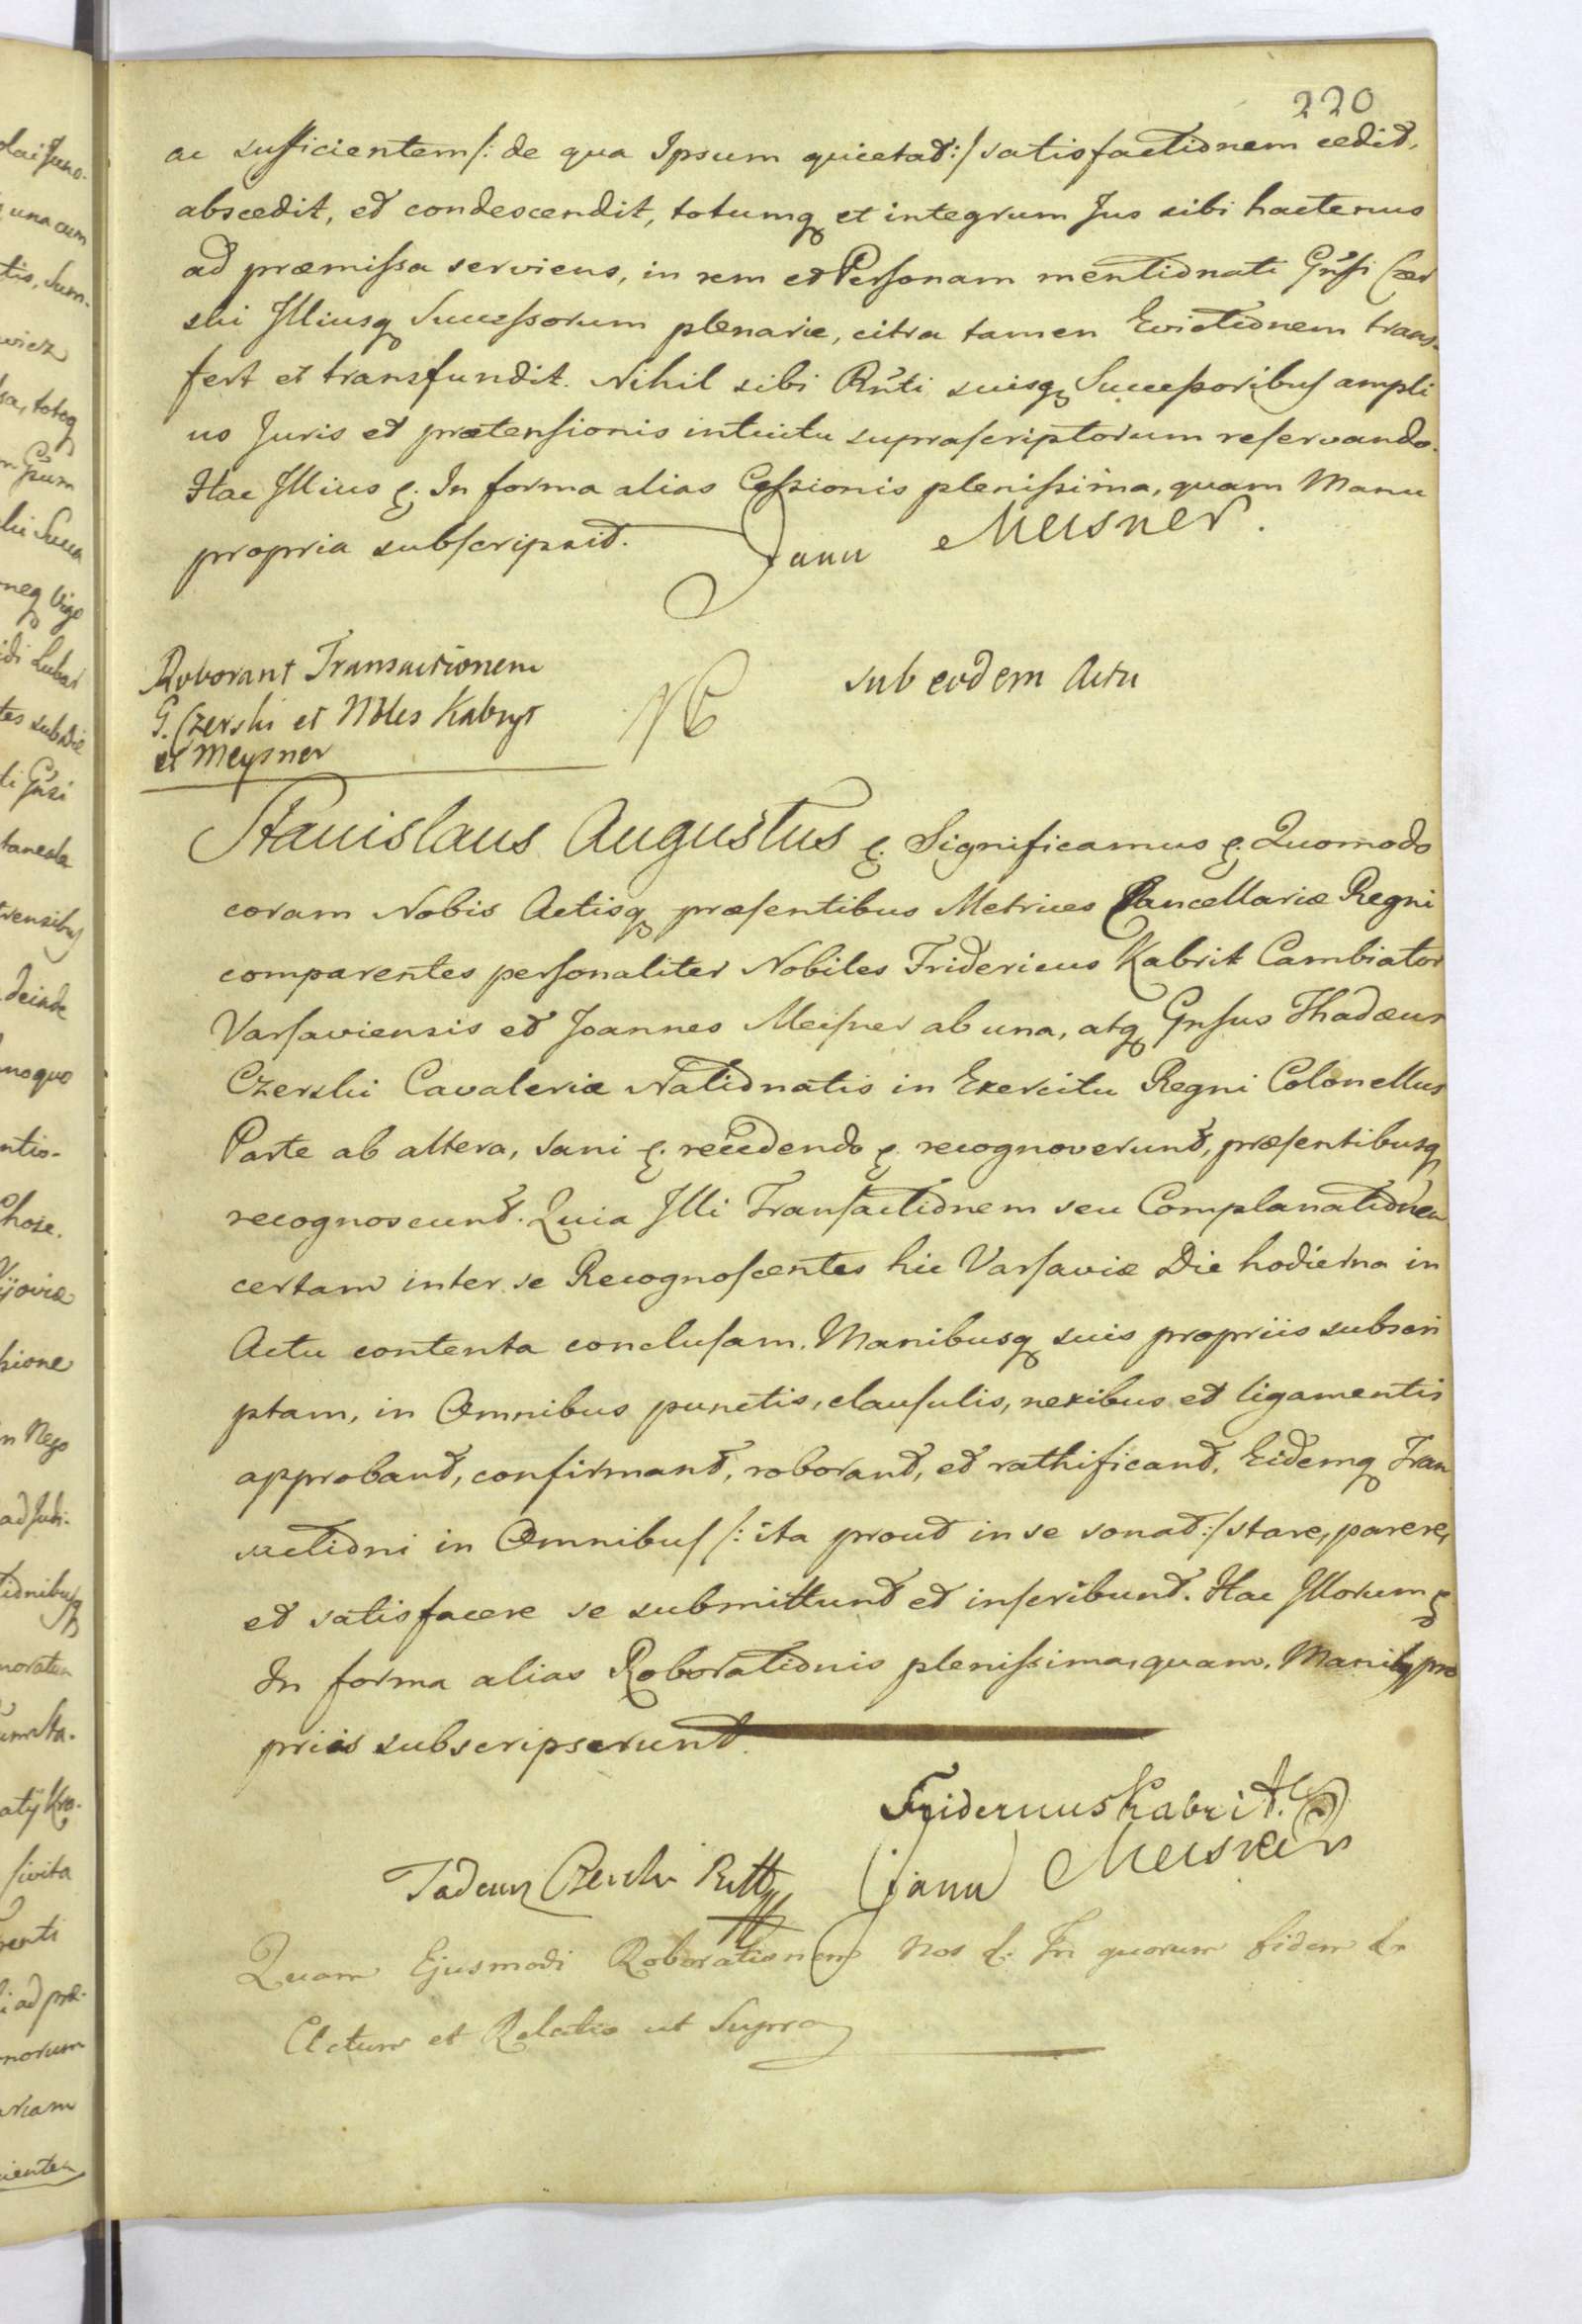 220
ac sufficientem /: de qua Ipsum quietat :/ satisfactionem cedit,
abscedit, et condescendit, totumq et integrum Jus sibi hactenus
ad præmissa serviens, in rem et Personam mentionati Gnsi Czer
ski Illiusq Successorum plenarie, citra tamen Evictionem trans-
fert et transfundit. Nihil sibi Rnti suisq Successoribus ampli
us Juris et prætensionis intuitu suprascriptorum reservando.
Hac Illius &. In forma alias Cessionis plenissima, quam Manu
propria subscripsit. Jann Meisner.
Roborant Transactionem
G. Czerski et Nbles Kabryt
et Meysner
sub eodem Actu
Stanislaus Augustus &. Significamus &. Quomodo
coram Nobis Actisq præsentibus Metrices Cancellariæ Regni
comparentes personaliter Nobiles Fridericus Kabrit Cambiator
Varsaviensis et Joannes Meisner ab una, atq Gnsus Thadæus
Czerski Cavaleriæ Nationatis in Exercitu Regni Colonellus
Parte ab altera, sani &. recedendo &. recognoverunt, præsentibusq
recognoscunt. Quia Illi Transactionem seu Complanationem
certam inter se Recognoscentes hic Varsaviæ Die hodierna in
Actu contenta conclusam. Manibusq suis propriis subscri
ptam, in Omnibus punctis, clausulis, nexibus et ligamentis
approbant, confirmant, roborant, et rathificant. Eidemq Tran
sactioni in Omnibus /: ita prout in se sonat :/ stare, parere,
et satisfacere se submittunt et inscribunt. Hac Illorum &
In forma alias Roborationis plenissima, quam. Manibq pro
priis subscripserunt.
Fridericus Kabrit.
Tadeusz Czerski Jann Meisner
Quam Ejusmodi Roborationem Nos &. In quorum fidem &
Actum et Relatio ut Supra